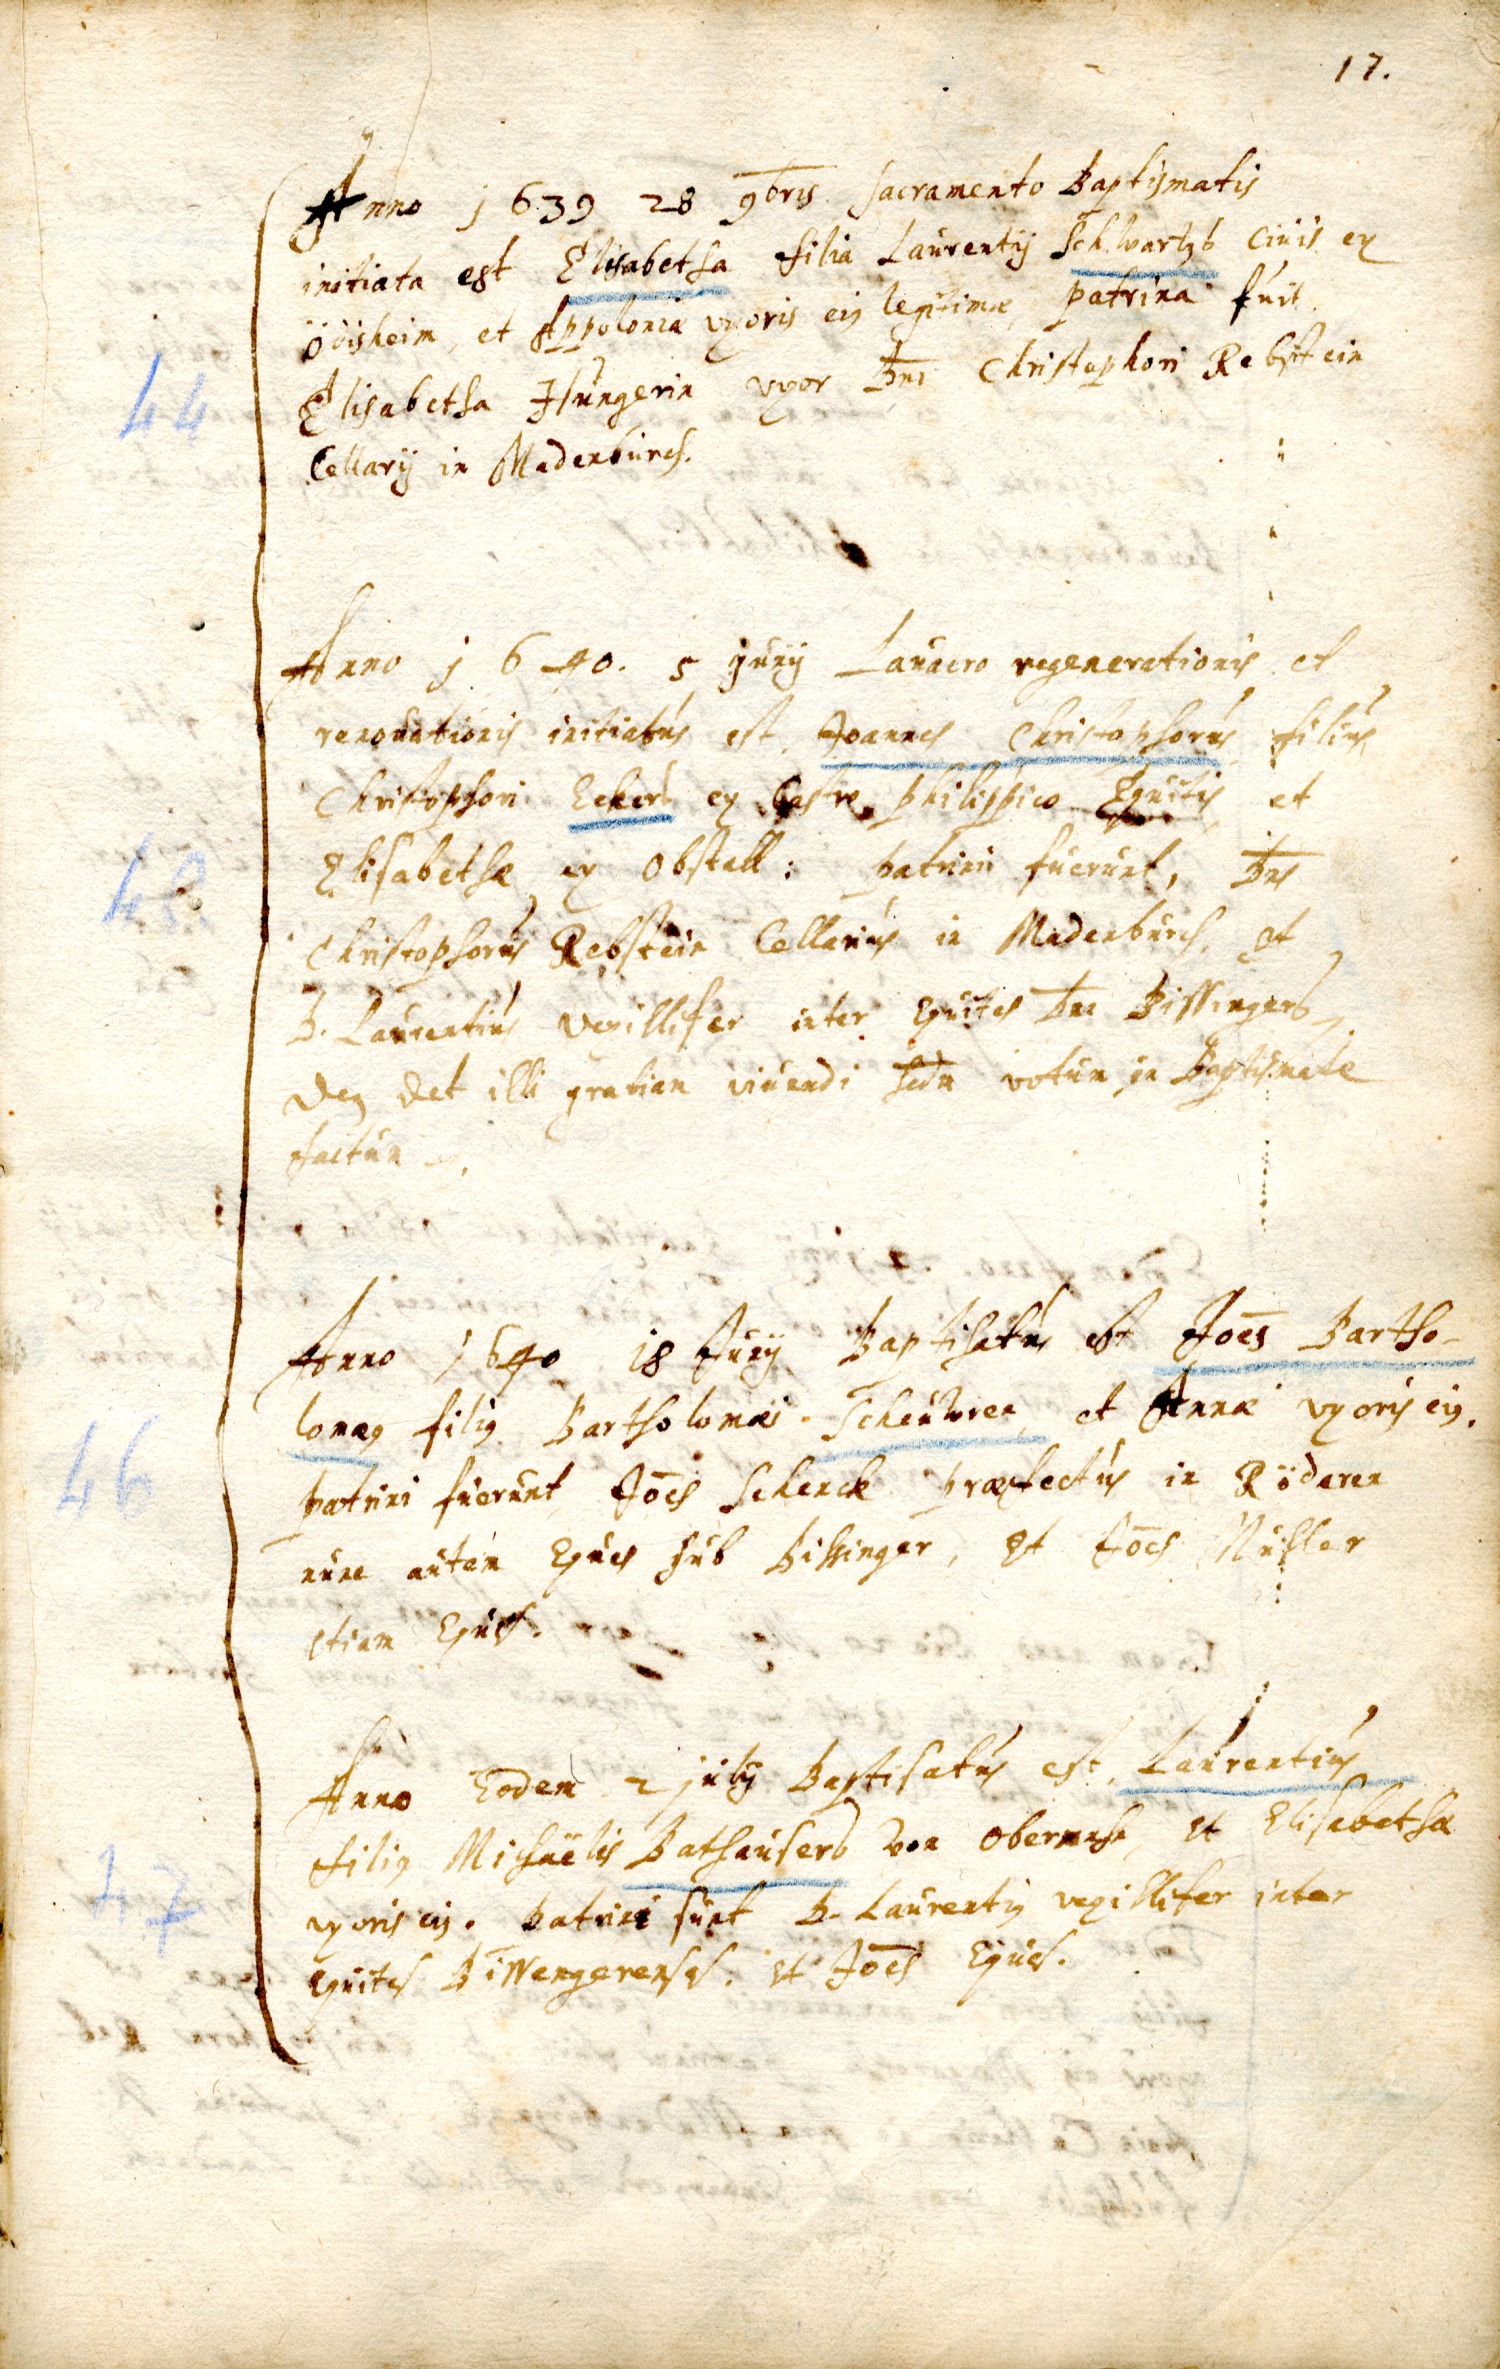 17.
Anno 1639 28 9bris sacramento Baptismatis
initiata est Elisabetha filia Laurentij Schwartzs Ciuis ex
Öwisheim, et Appoloniæ uxoris eius legitimæ, patrina fuit
Elisabetha Hungerin uxor Dni Christophori Rebstein
Cellarij in Madenburch.
44
Anno 1640. 5 Junij Lauacro regenerationis et
renouationis initiatus est Joannes Christophorus filius
Christophori Eckers ex Castro philippico Equitis et
Elisabethæ ex Obstatt: patrini fuerunt, Dns
Christophorus Rebstein Cellarius in Madenburch, et
D. Laurentius vexillifer inter Equites Dni Bissingers,
Deus det illi gratiam viuendi scdm votum in Baptismate
factum.
Anno 1640 18 Junij Baptisatus est Joēs Bartho-
lomæus filius Bartholomæi et Annæ uxoris eius.
patrini fuerunt Joēs Schenck præfectus in Röderen
nunc autem Eques sub Bissinger, et Joēs Müller
etiam Eques.
46
Anno Eodem 2 julij Baptisatus est Laurentius
filius Michaëlis Bathausers von et Elisabethæ
uxoris eius. Patrini sunt D. Laurentius vexillifer inter
equites et Joēs Eques.
47